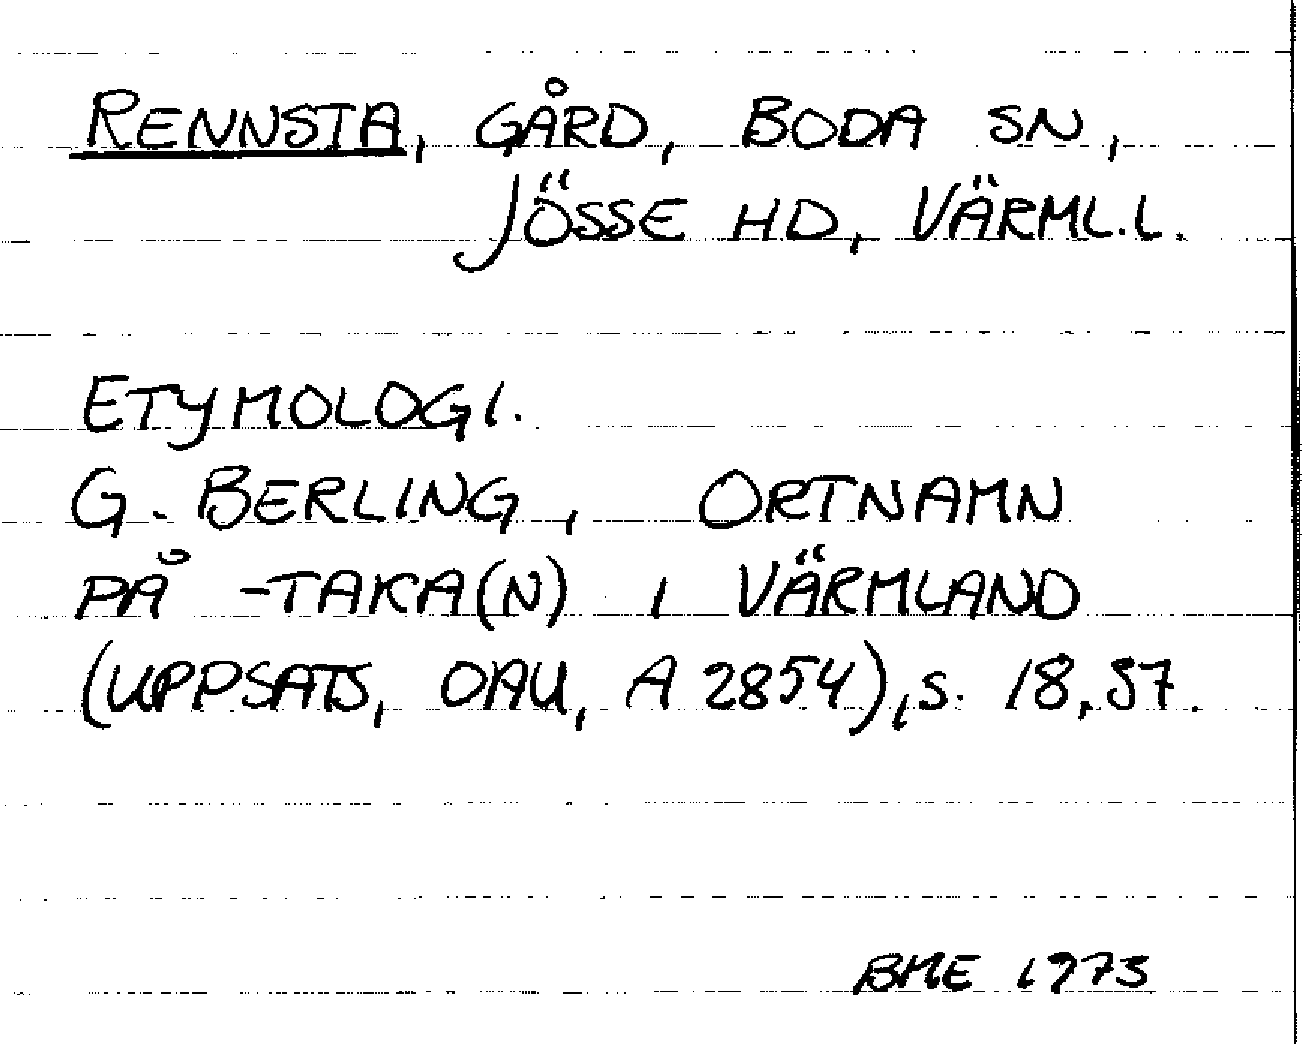 RENNSTA, GÅRD, BODA SN,
JÖSSE HD, VÄRML.L.
ETYMOLOGI.
G. BERLING, ORTNAMN
PÅ -TAKA(N) I VÄRMLAND
(UPPSATS, OAU, A 2854), S. 18, 57.
BME 1973